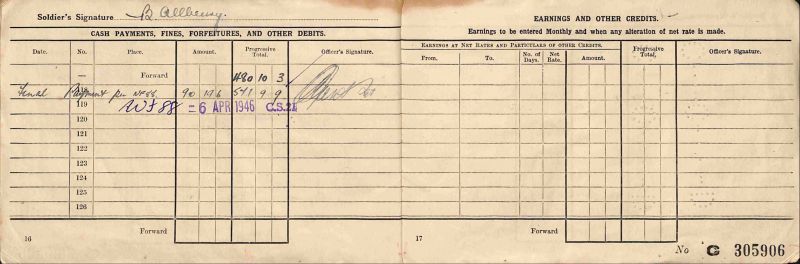 Soldier's Signature B. Allbeury.
CASH PAYMENTS, FINES, FORFEITURES, AND OTHER DEBITS.
Date. No. Place. Amount. Progressive Total. Officer's Signature.
— Forward 480 10 3
Final Payment per WF88. 90 19 6 571 9 9
119 WF 88 = 6 APR 1946 C.S.21
120
121
122
123
124
125
126
Forward
16
EARNINGS AND OTHER CREDITS.
Earnings to be entered Monthly and when any alteration of net rate is made.
EARNINGS AT NET RATES AND PARTICULARS OF OTHER CREDITS.
From, To. No. of Days. Net Rate. Amount. Progressive Total, Officer's Signature.
Forward
17
No G 305906